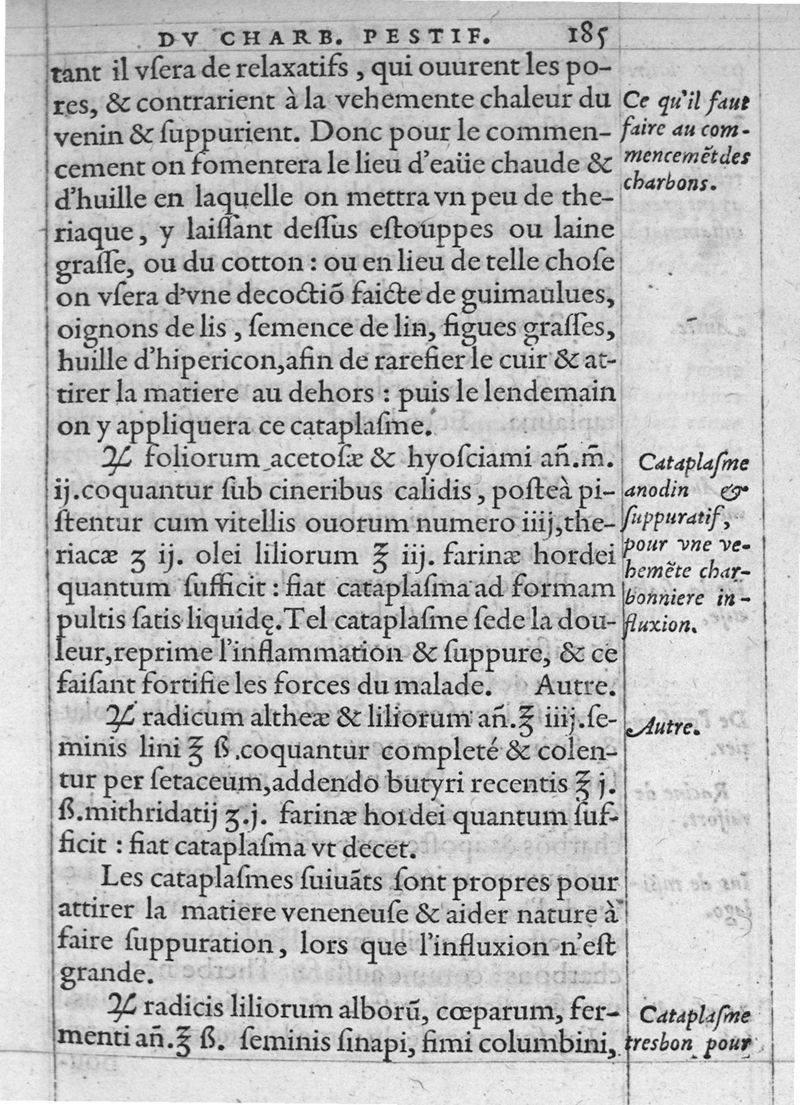 DV CHARB. PESTIF. 185
tant il vſera de relaxatifs, qui ouurent les po-
res, & contrarient à la vehemente chaleur du
venin & ſuppurient. Donc pour le commen-
cement on fomentera le lieu d'eaüe chaude &
d'huille en laquelle on mettra vn peu de the-
riaque, y laiſſant deſſus eſtouppes ou laine
graſſe, ou du cotton : ou en lieu de telle choſe
on vſera d'vne decoctiõ faicte de guimaulues,
oignons de lis, ſemence de lin, figues graſſes,
huille d'hipericon, afin de rarefier le cuir & at-
tirer la matiere au dehors : puis le lendemain
on y appliquera ce cataplaſme.
℞ foliorum acetoſæ & hyoſciami añ. m̃.
ij. coquantur ſub cineribus calidis, poſteà pi-
ſtentur cum vitellis ouorum numero iiij, the-
riacæ ʒ ij. olei liliorum ℥ iij. farinæ hordei
quantum ſufficit : fiat cataplaſma ad formam
pultis ſatis liquidę. Tel cataplaſme ſede la dou-
leur, reprime l'inflammation & ſuppure, & ce
faiſant fortifie les forces du malade. Autre.
℞ radicum altheæ & liliorum añ. ℥ iiij. ſe-
minis lini ℥ ß. coquantur completé & colen-
tur per ſetaceum, addendo butyri recentis ℥ j.
ß. mithridatij ʒ. j. farinæ hordei quantum ſuf-
ficit : fiat cataplaſma vt decet.
Les cataplaſmes ſuiuãts ſont propres pour
attirer la matiere veneneuſe & aider nature à
faire ſuppuration, lors que l'influxion n'eſt
grande.
℞ radicis liliorum alborũ, cœparum, fer-
menti añ. ℥ ß. ſeminis ſinapi, fimi columbini,
Ce qu'il faut
faire au com-
mencemẽt des
charbons.
Cataplaſme
anodin &
ſuppuratif,
pour vne ve-
hemẽte char-
bonniere in-
fluxion.
Autre.
Cataplaſme
tresbon pour